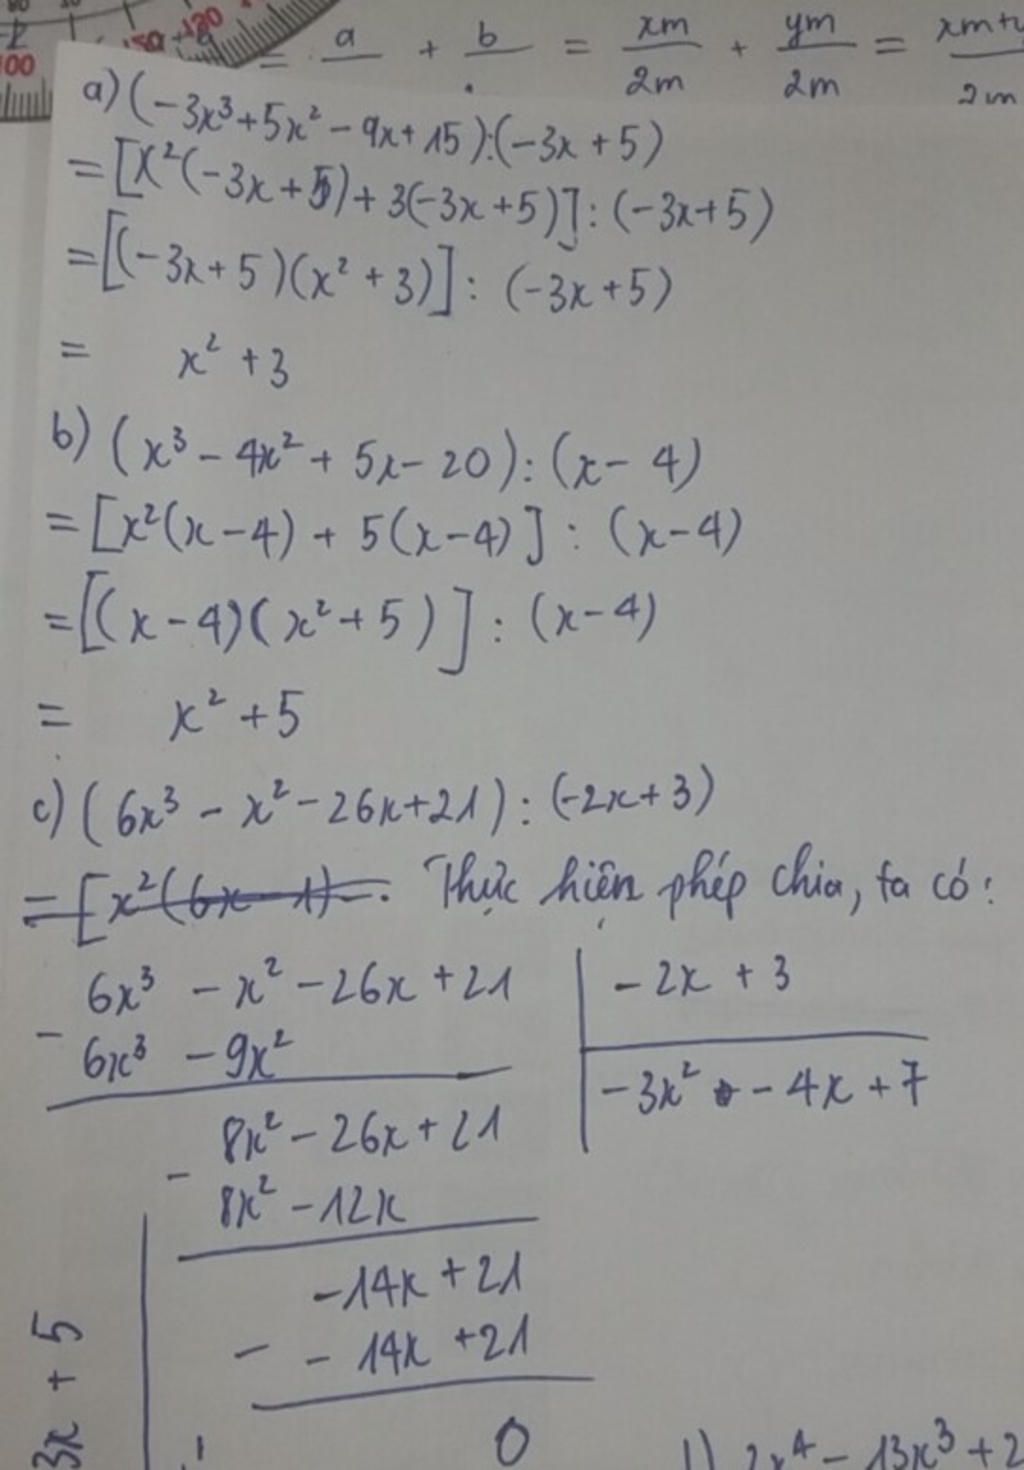 100 150 120
= a/ + b/ = xm/2m + ym/2m = xm+y/2m
a) (-3x³+5x² - 9x+ 15):(-3x + 5)
= [x²(-3x+5)+ 3(-3x+5)] : (-3x+5)
= [(-3x+5)(x² + 3)] : (-3x+5)
= x² + 3
b) (x³ - 4x² + 5x - 20) : (x - 4)
= [x²(x-4) + 5(x-4)] : (x-4)
= [(x-4)(x²+5)] : (x-4)
= x² + 5
c) (6x³ - x² - 26x+21) : (-2x+3)
= [x²(6x-1) - . Thực hiện phép chia, ta có:
6x³ - x² - 26x + 21 | -2x + 3
- 6x³ - 9x²
-3x² - 4x + 7
8x² - 26x + 21
- 8x² - 12x
-14x + 21
- - 14x + 21
0
3x + 5
2x⁴ - 13x³ + 2